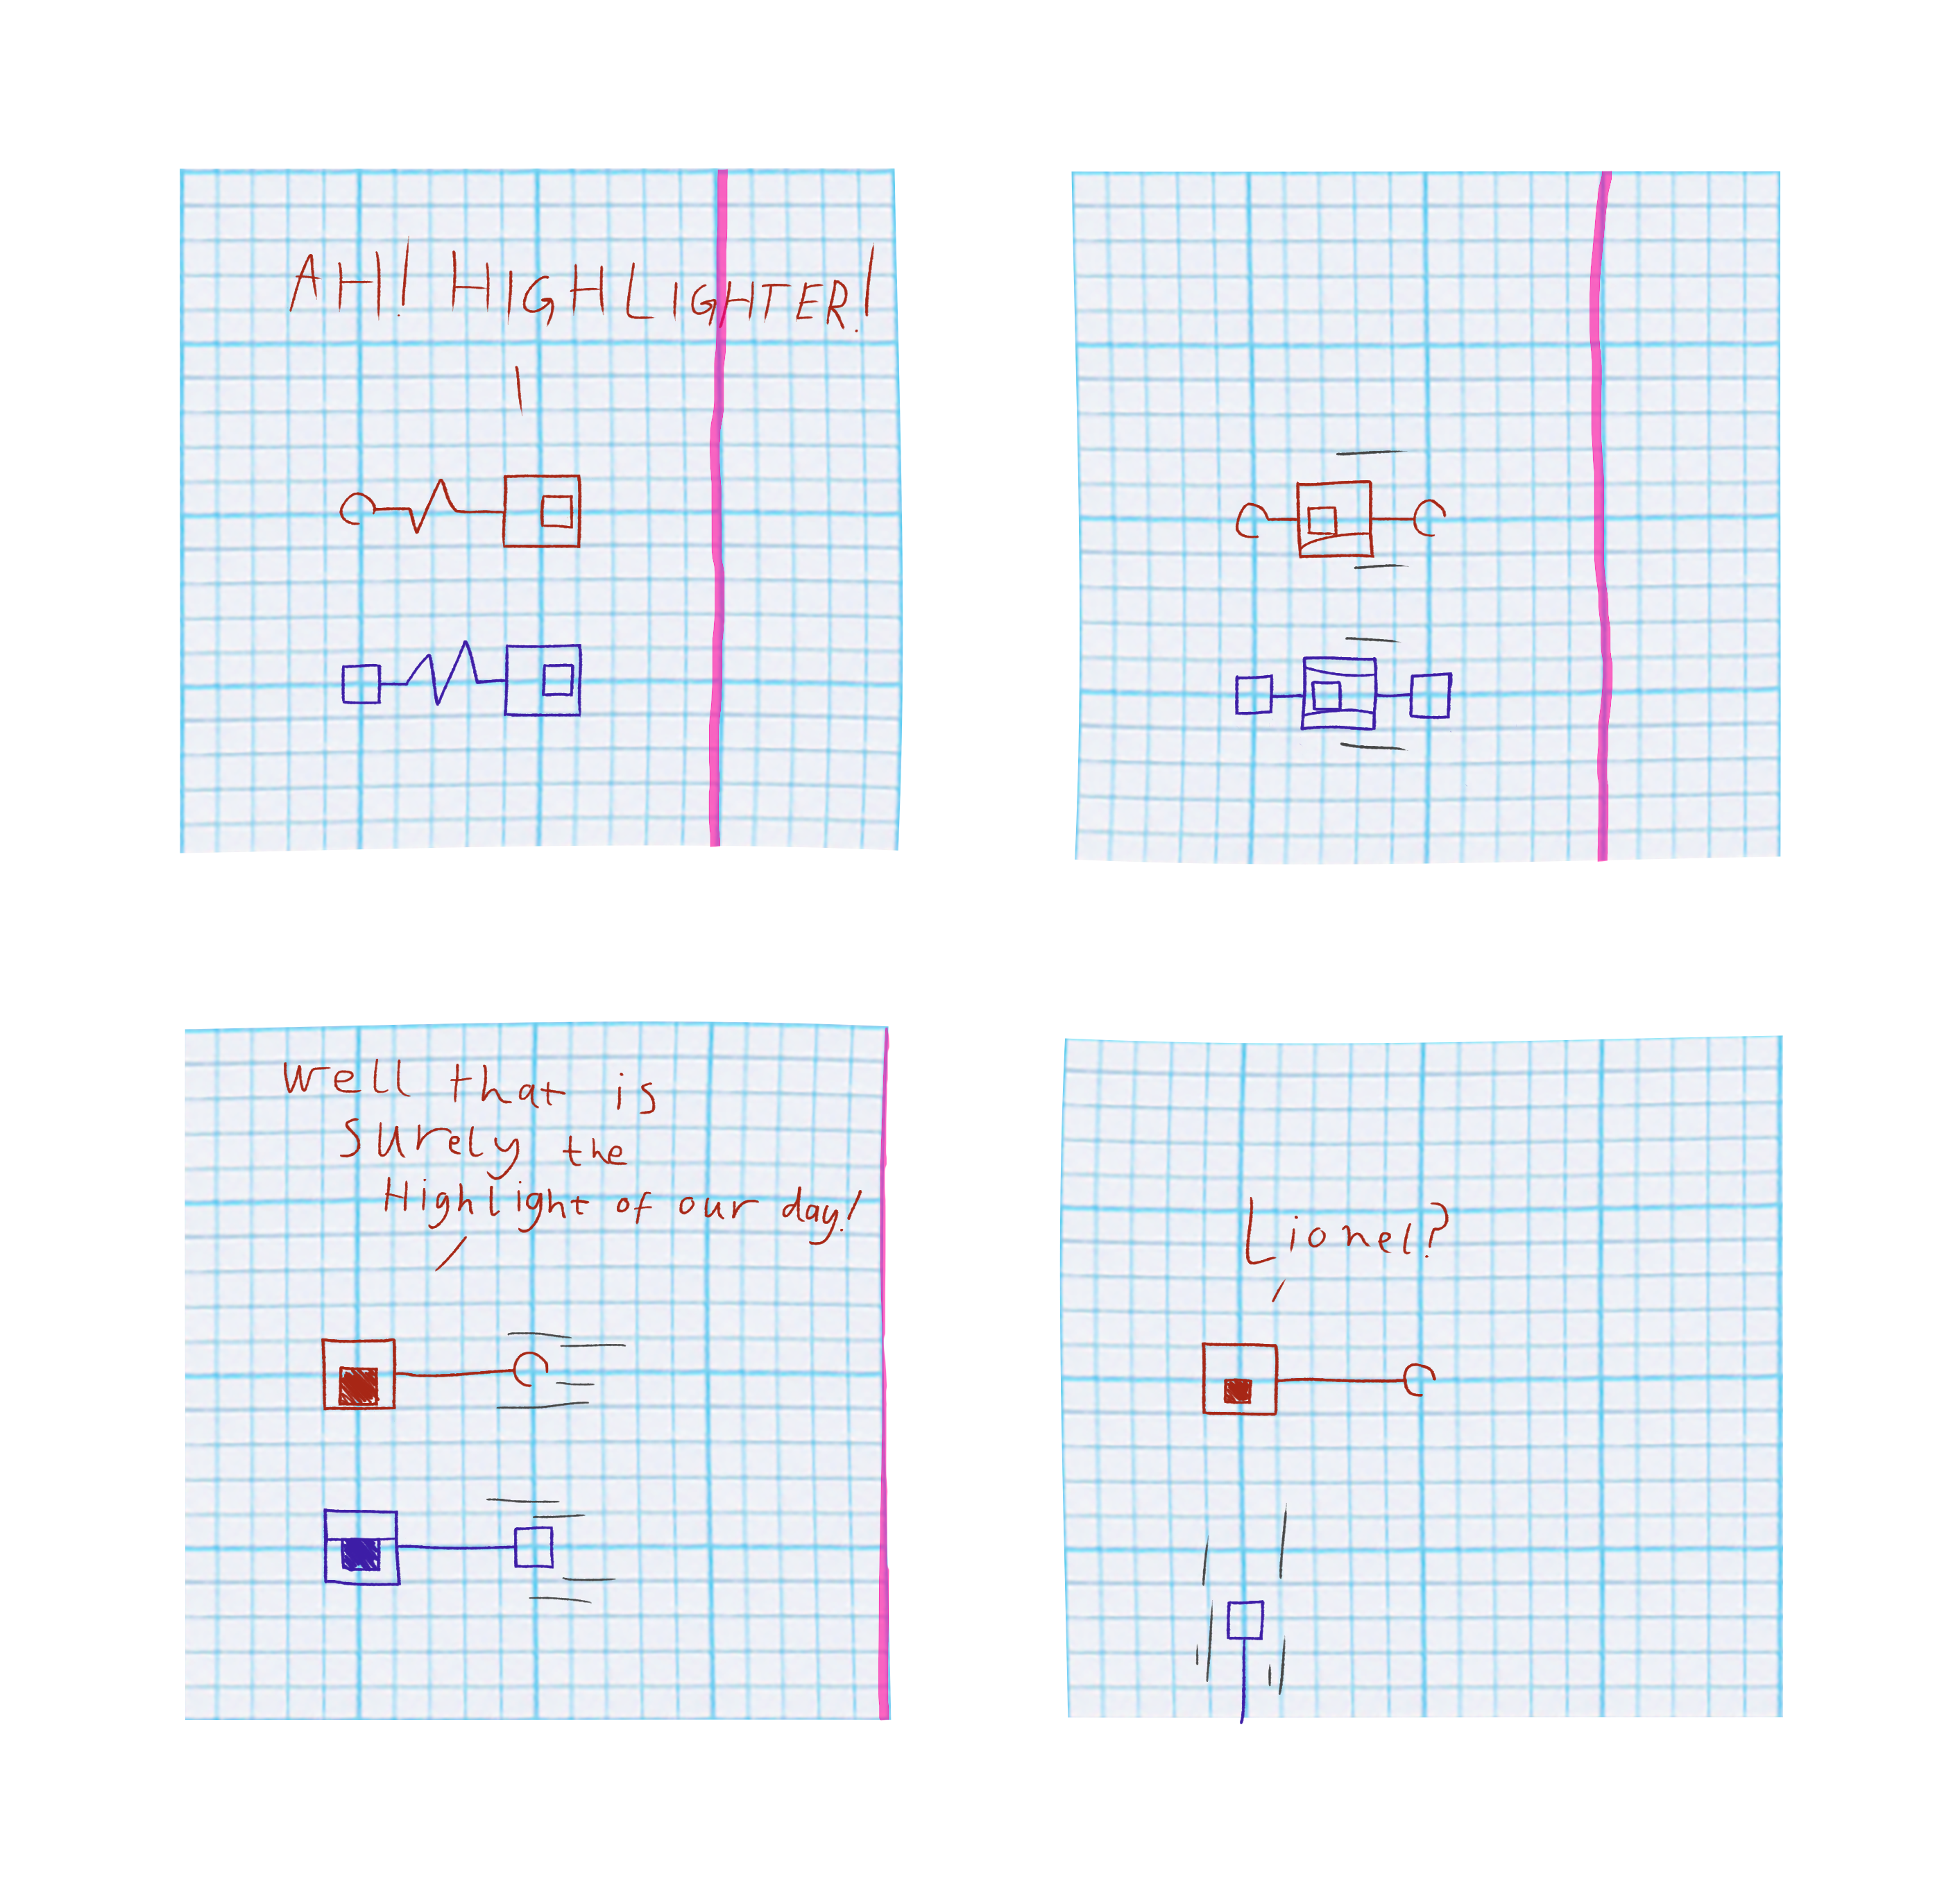 AH! HIGHLIGHTER!
Well that is
surely the
Highlight of our day!
Lionel?